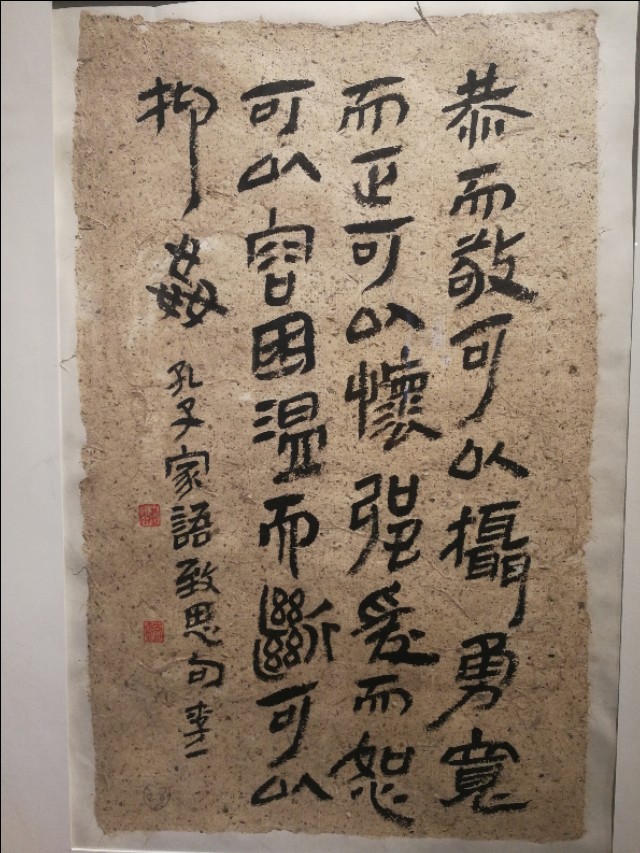 恭而敬可以攝勇寬
而正可以懷强爰而恕
可以容困温而斷可以
抑姦
孔子家語致思句李一